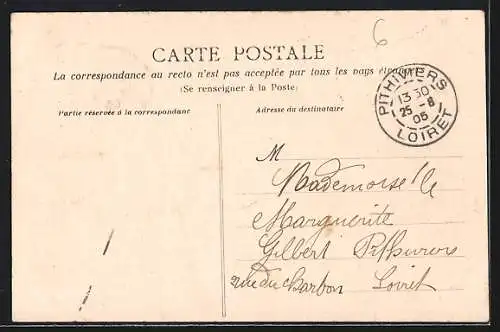 6
CARTE POSTALE
La correspondance au recto n'est pas acceptée par tous les pays étrangers
(Se renseigner à la Poste)
PITHIVIERS
13 30
25 -8
05
LOIRET
Partie réservée à la correspondance
Adresse du destinataire
M
Mademoiselle
Marguerite
Gilbert Pithiviers
rue du Barbon Loiret